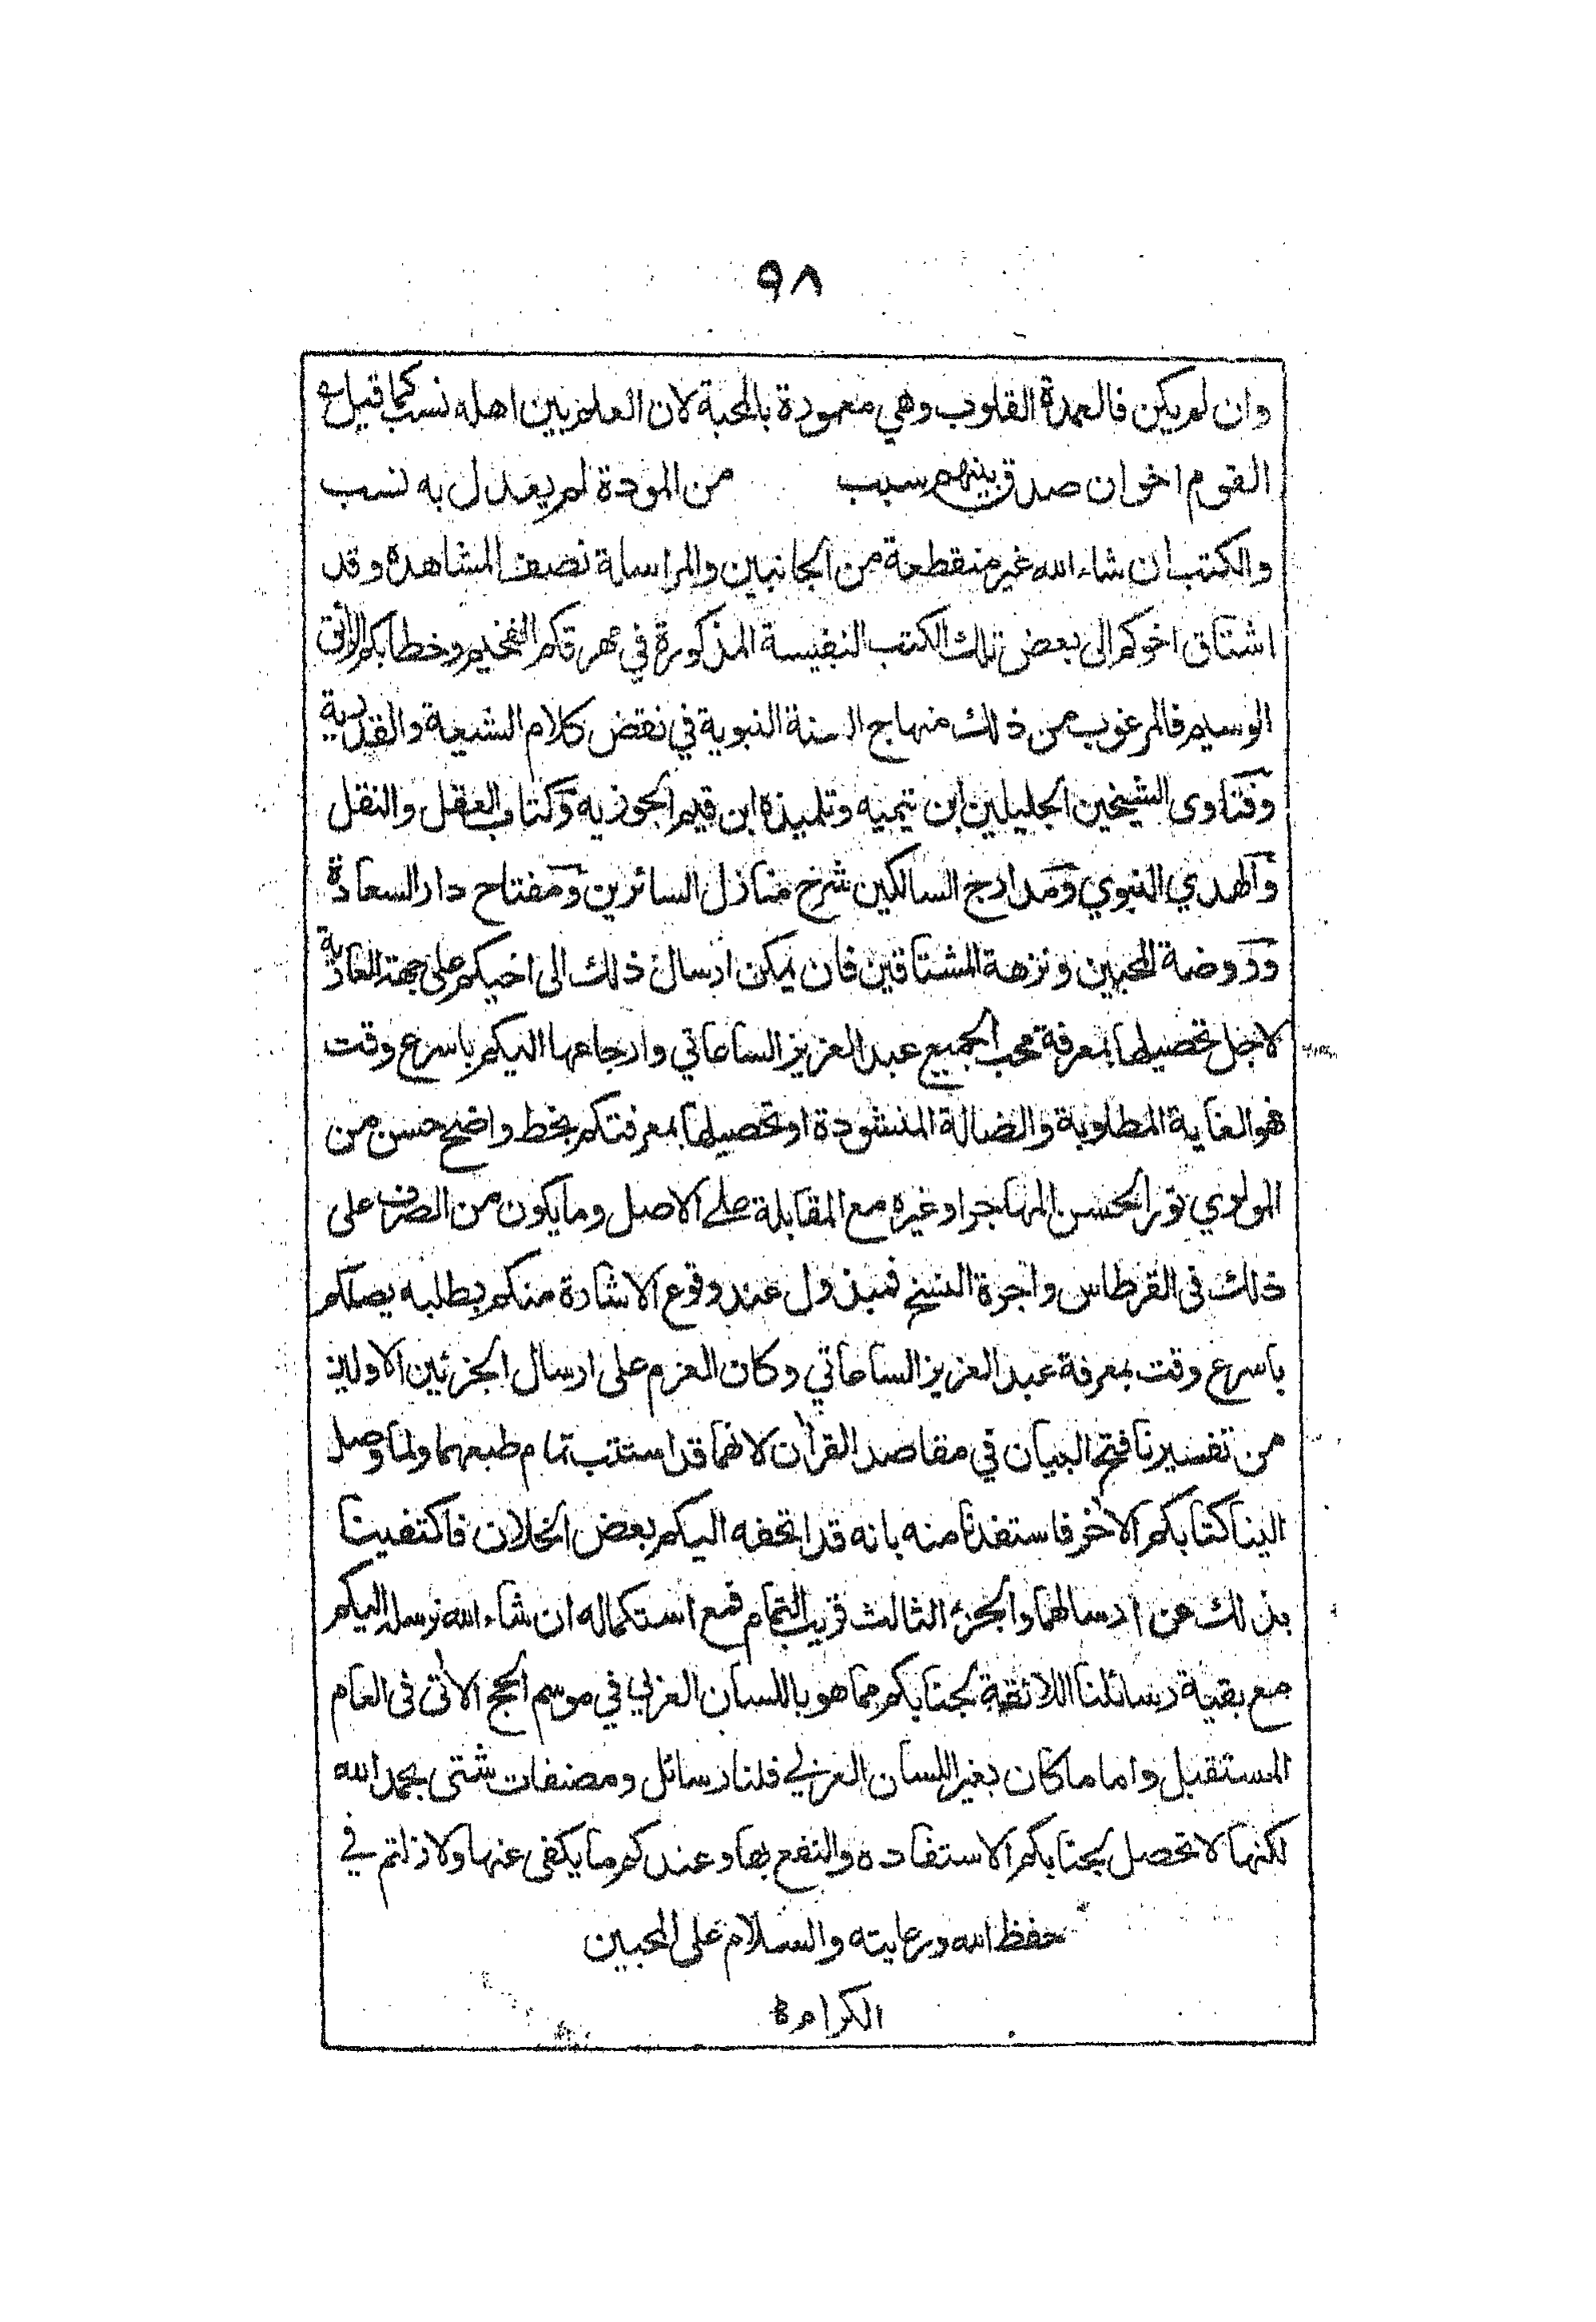 ٩٨
وان لم يكن فالعمدة القلوب وهي معمودة بالمحبة لان العلم بين اهله نسب كما قيل ع
القوم اخوان صدق بينهم سبب من المودة لم يعدل به نسب
والكتب ان شاء الله غير منقطعة من الجانبين والمراسلة نصف المشاهده وقد
اشتاق اخوكم الى بعض تلك الكتب النفيسة المذكورة في مهرقكم الفخيم وخطابكم الاتى
الوسيم فالمرغوب من ذلك منهاج السنة النبوية في نقض كلام الشيعة والقدرية
وفتاوى الشيخين الجليلين ابن تيميه وتلميذه ابن قيم الجوزيه وكتاب العقل والنقل
والهدي النبوي ومدارج السالكين شرح منازل السائرين ومفتاح دار السعادة
وروضة المحبين ونزهة المشتاقين فان يمكن ارسال ذلك الى اخيكم على جهة العارية
لاجل تحصيلها بمعرفة محب الجميع عبد العزيز الساعاتي وارجاعها اليكم باسرع وقت
فهو الغاية المطلوبة والضالة المنشودة او تحصيلها بمعرفتكم بخط واضح حسن من
المولوي نور الحسن المهاجر او غيره مع المقابلة على الاصل وما يكون من الصرف على
ذلك فى القرطاس واجرة النسخ فمبذول عند وقوع الاشارة منكم بطلبه يصلكم
باسرع وقت بمعرفة عبد العزيز الساعاتي وكان العزم على ارسال الجزئين الاولين
من تفسيرنا فتح البيان في مقاصد القرآن لانهما قد استتب تمام طبعهما ولما وصل
الينا كتابكم الاخر فاستفدنا منه بانه قد اتحفه اليكم بعض الخلان فاكتفينا
بذلك عن ارسالهما والجزء الثالث قريب التمام فمع استكماله ان شاء الله نرسله اليكم
مع بقية رسائلنا اللائقة بجنابكم مما هو باللسان العربي في موسم الحج الاتى فى العام
المستقبل واما ما كان بغير اللسان العربي فلنا رسائل ومصنفات شتى بحمد الله
لكنها لا تحصل بجنابكم الاستفاده والنفع بها وعندكم ما يكفى عنها ولا زلتم في
حفظ الله ورعايته والسلام على المحبين
الكرام